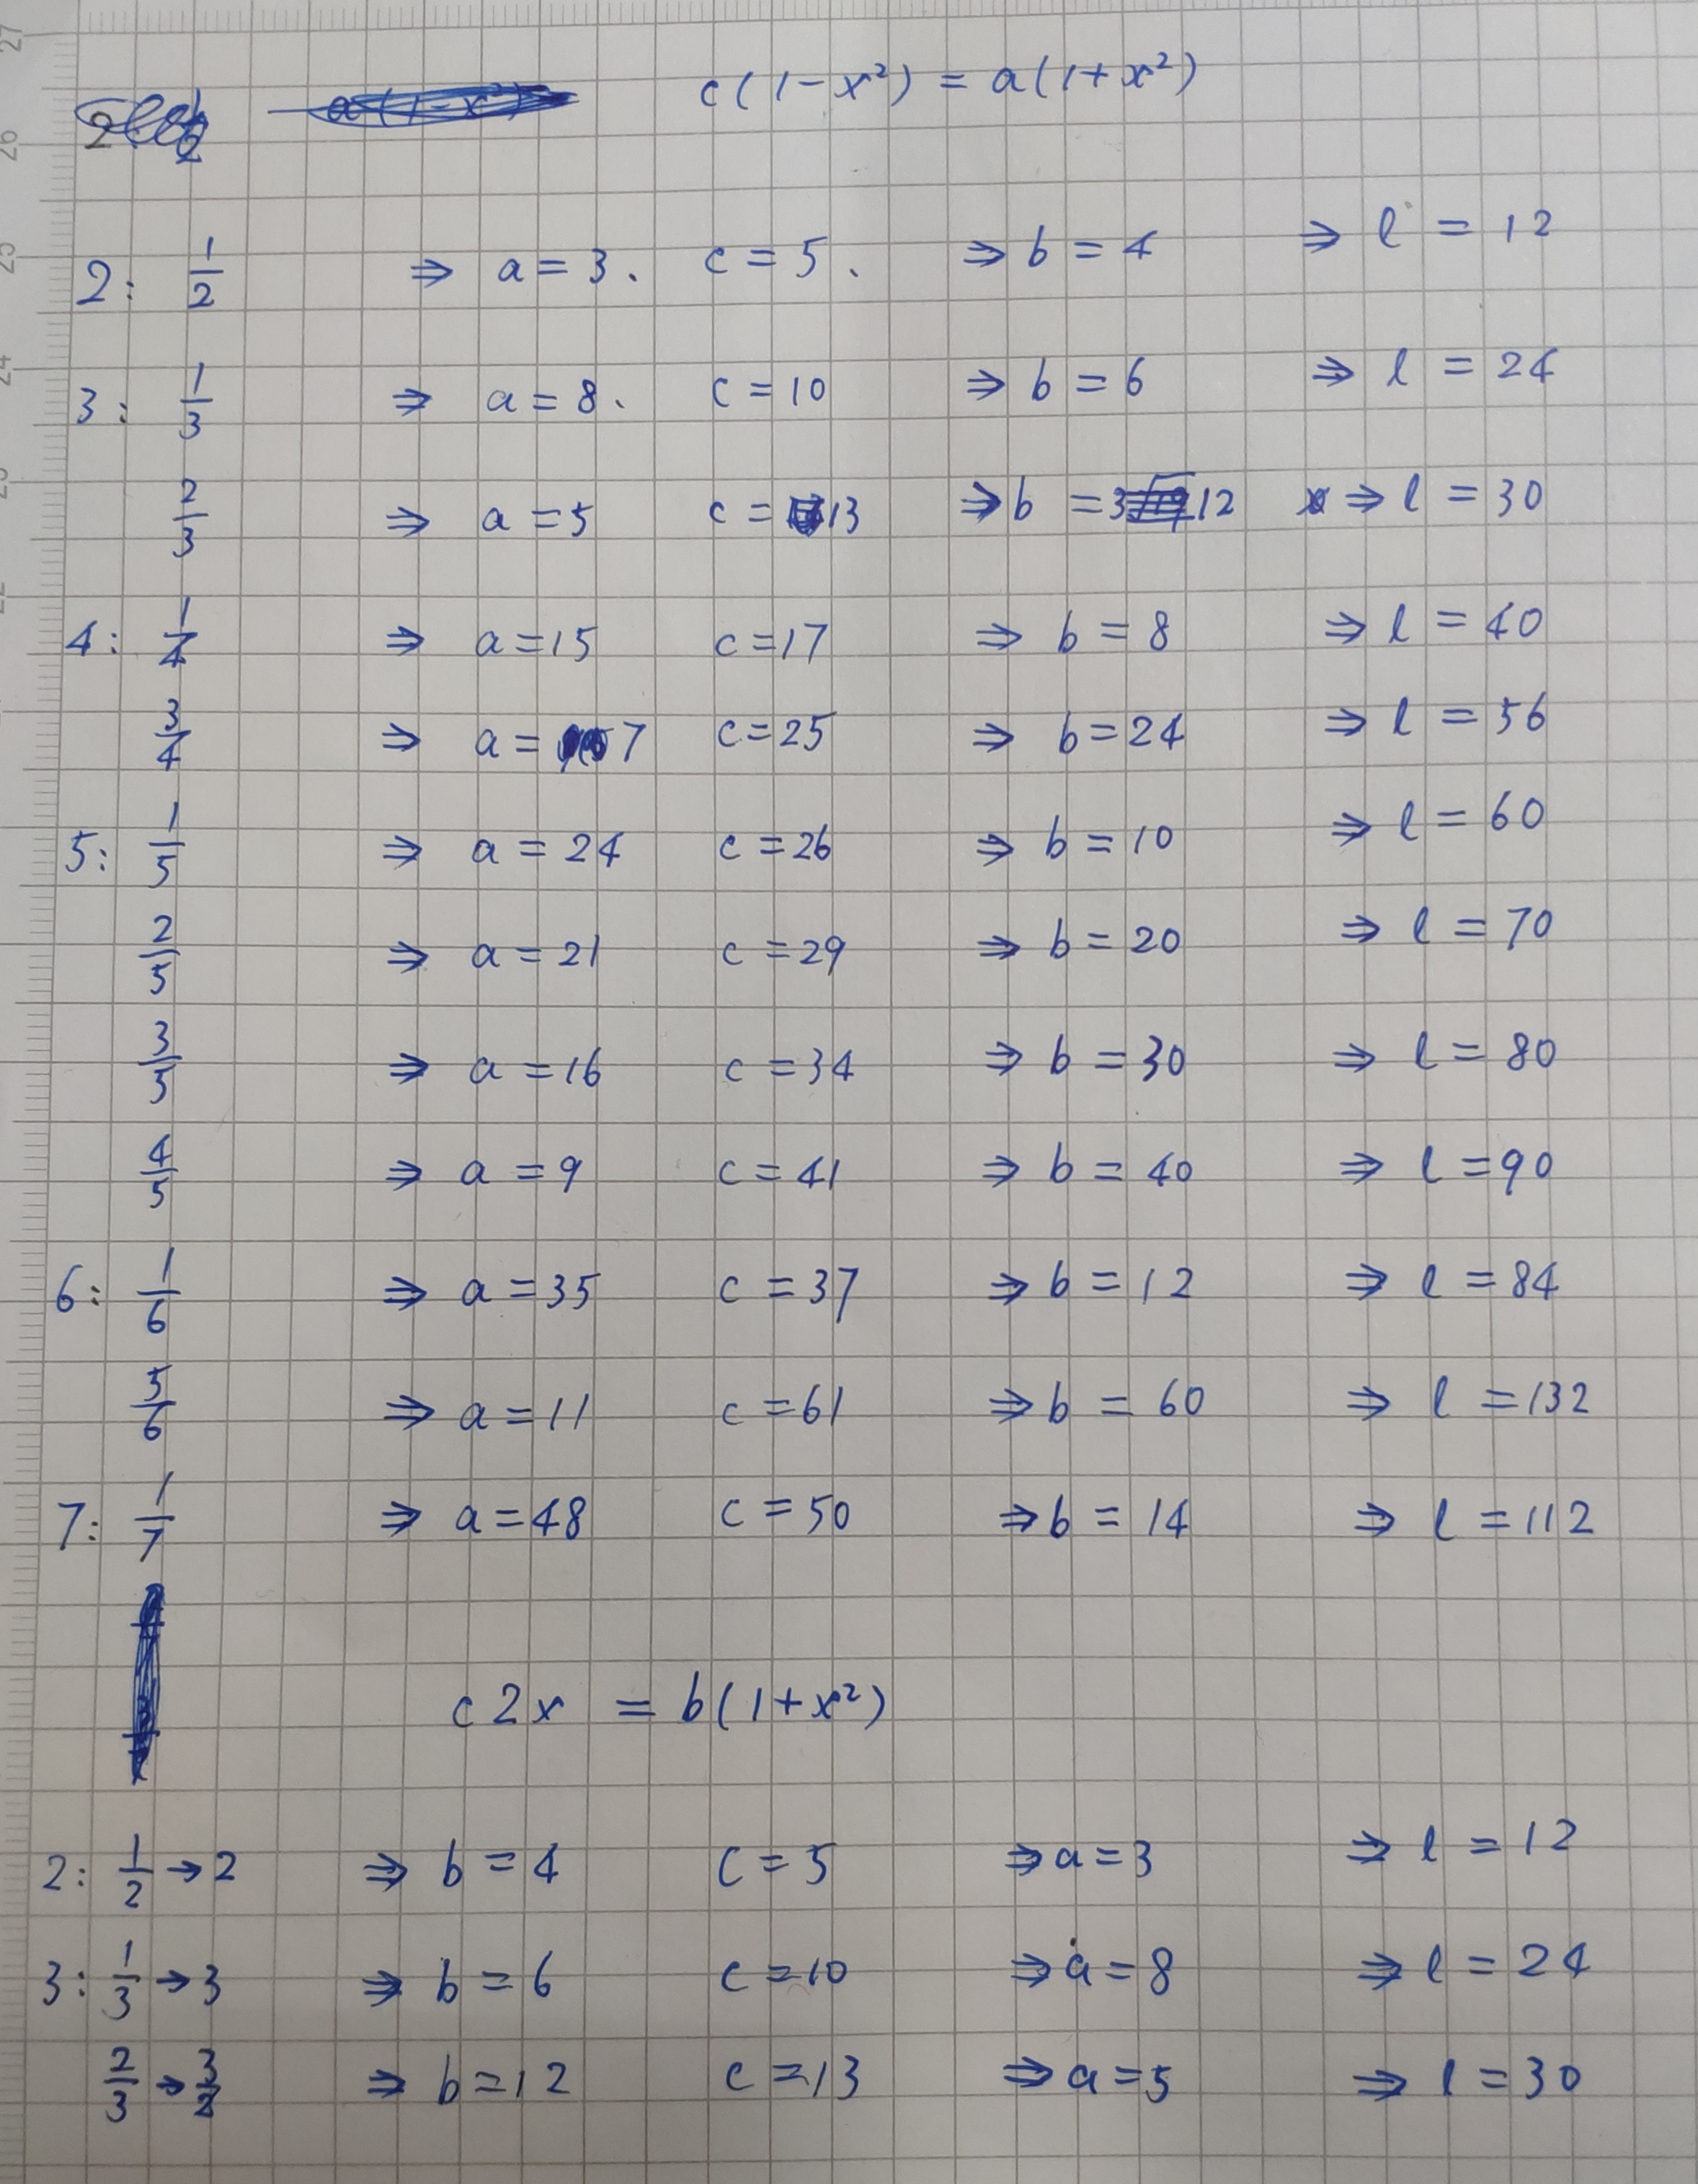 c(1-x²) = a(1+x²)
2: 1/2 ⇒ a=3. c=5. ⇒ b=4 ⇒ l=12
3: 1/3 ⇒ a=8. c=10 ⇒ b=6 ⇒ l=24
2/3 ⇒ a=5 c=13 ⇒ b=12 ⇒ l=30
4: 1/4 ⇒ a=15 c=17 ⇒ b=8 ⇒ l=40
3/4 ⇒ a=7 c=25 ⇒ b=24 ⇒ l=56
5: 1/5 ⇒ a=24 c=26 ⇒ b=10 ⇒ l=60
2/5 ⇒ a=21 c=29 ⇒ b=20 ⇒ l=70
3/5 ⇒ a=16 c=34 ⇒ b=30 ⇒ l=80
4/5 ⇒ a=9 c=41 ⇒ b=40 ⇒ l=90
6: 1/6 ⇒ a=35 c=37 ⇒ b=12 ⇒ l=84
5/6 ⇒ a=11 c=61 ⇒ b=60 ⇒ l=132
7: 1/7 ⇒ a=48 c=50 ⇒ b=14 ⇒ l=112
c2x = b(1+x²)
2: 1/2 → 2 ⇒ b=4 c=5 ⇒ a=3 ⇒ l=12
3: 1/3 → 3 ⇒ b=6 c=10 ⇒ a=8 ⇒ l=24
2/3 → 3/2 ⇒ b=12 c=13 ⇒ a=5 ⇒ l=30